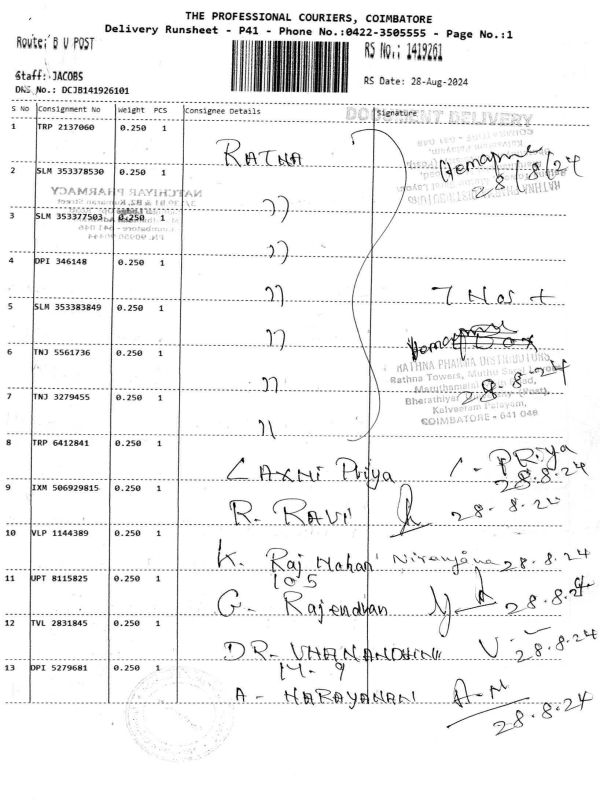 THE PROFESSIONAL COURIERS, COIMBATORE
Delivery Runsheet - P41 - Phone No.:0422-3505555 - Page No.:1
Route: B U POST
RS No.: 1419261
Staff: JACOBS
RS Date: 28-Aug-2024
DNS No.: DCJB141926101
S No Consignment No Weight PCS Consignee Details Signature
DOCUMENT DELIVERY
1 TRP 2137060 0.250 1 RATNA 28/8/24
2 SLM 353378530 0.250 1 "
NATCHIYAR PHARMACY
3 SLM 353377503 0.250 1 "
4 DPI 346148 0.250 1 " 7 Nos +
5 SLM 353383849 0.250 1 "
6 TNJ 5561736 0.250 1 "
RATHNA PHARMA DISTRIBUTORS
Rathna Towers,
28 8 24
Kalveeram Palayam,
COIMBATORE - 641 046
7 TNJ 3279455 0.250 1 "
8 TRP 6412841 0.250 1 LAXMI Priya L - PRiya
28.8.24
9 IXM 506929815 0.250 1 R. RAVI 28-8-24
10 VLP 1144389 0.250 1 K. Raj Mohan Niranjana 28.8.24
105
11 UPT 8115825 0.250 1 G. Rajendran 28.8.24
12 TVL 2831845 0.250 1 DR- 28.8.24
14-9
13 DPI 5279681 0.250 1 A - NARAYANAN A-N
28.8.24